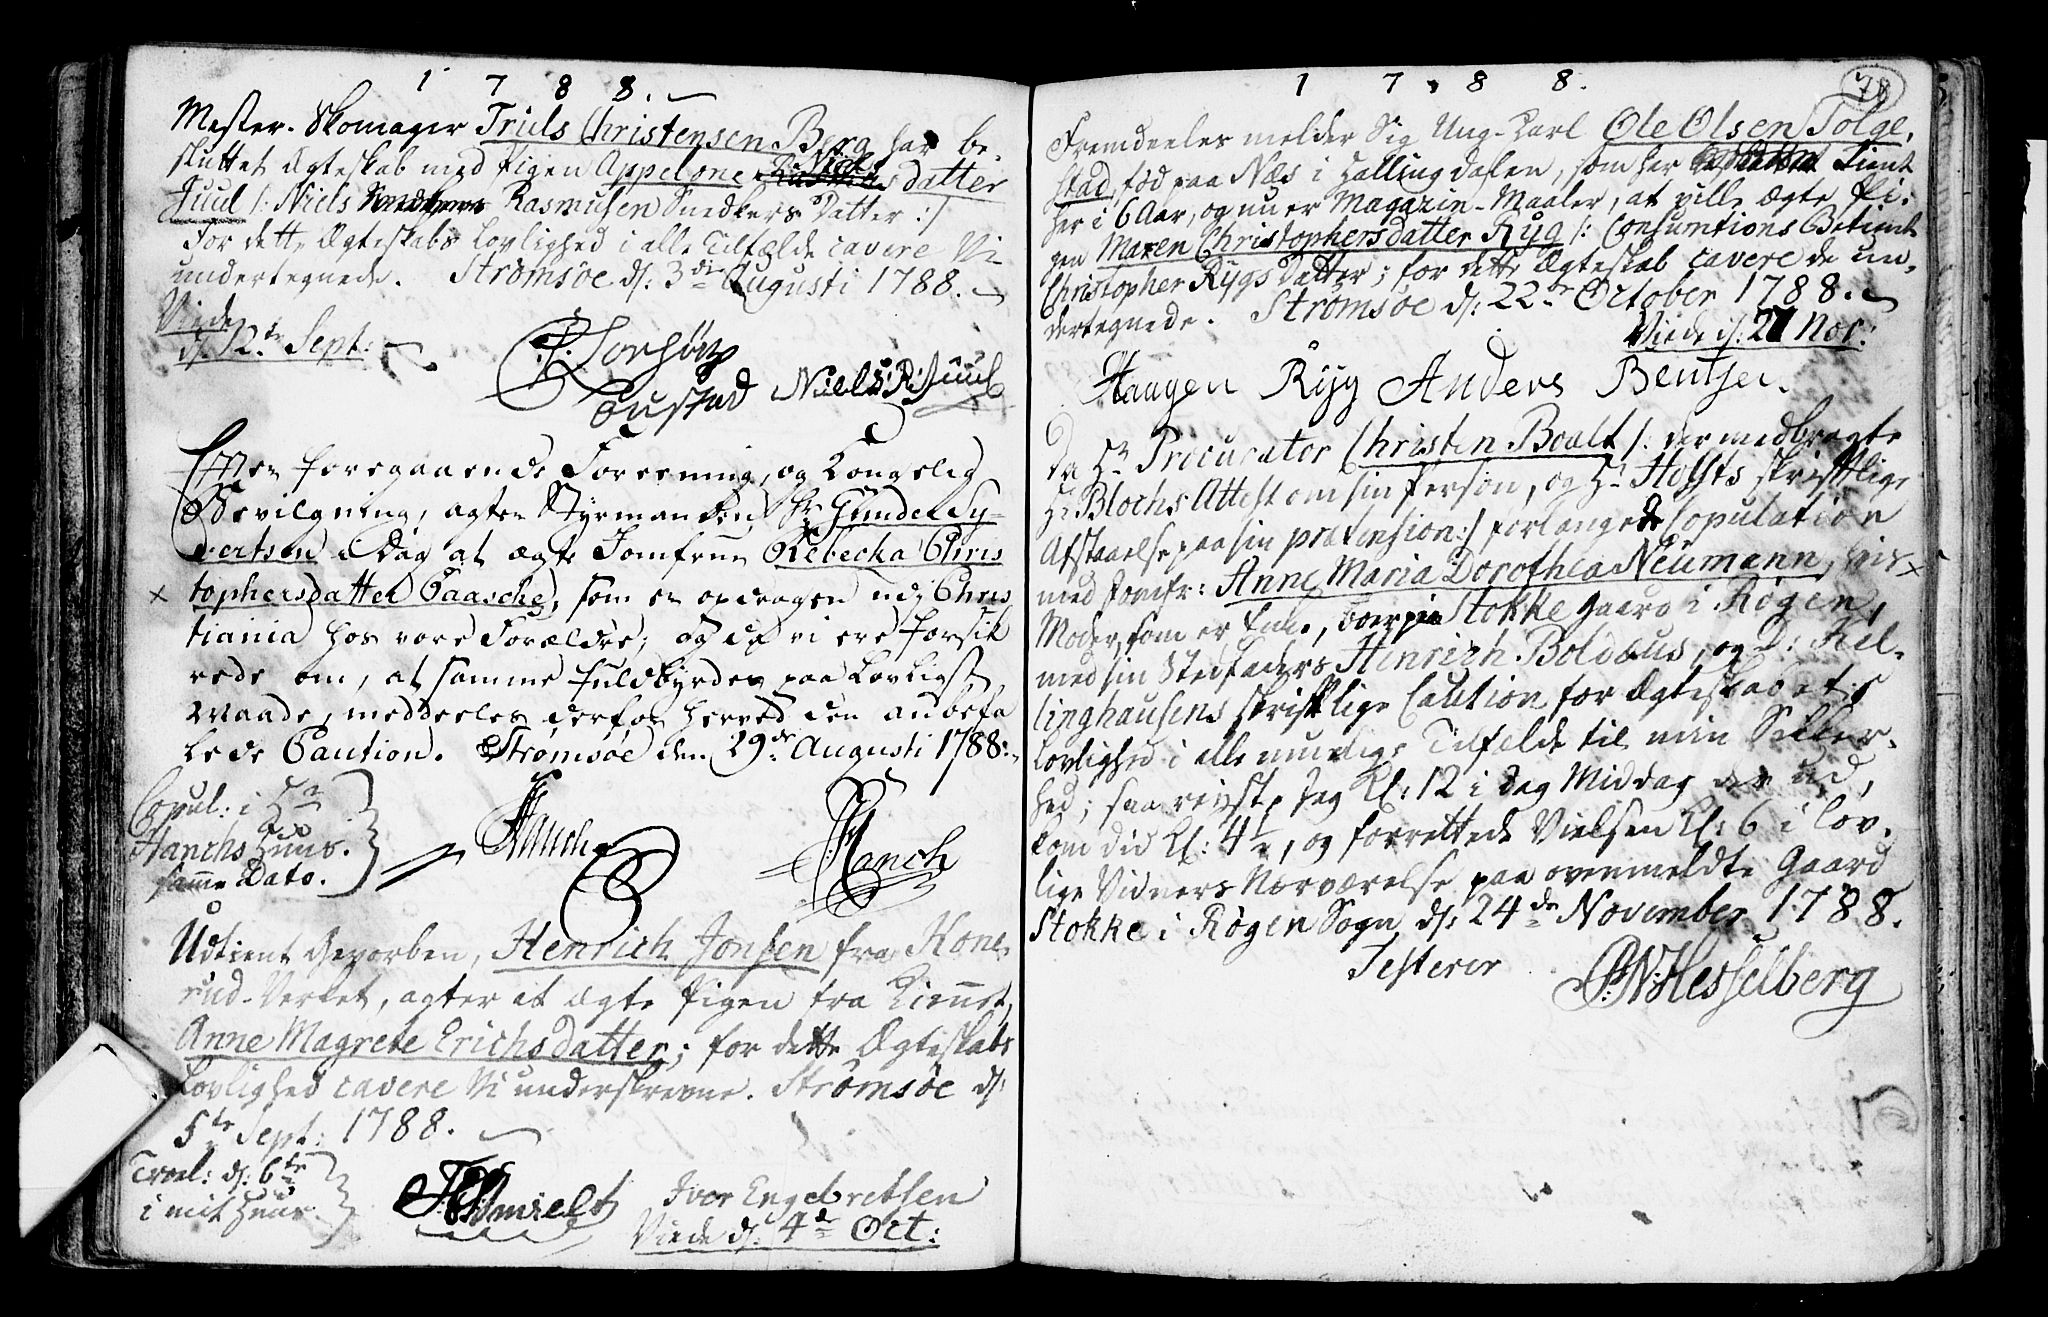 1 7 8 8.
Mester-Skomager Truls Christensen Berg har be-
sluttet Ægteskab med Pigen Appelone Niels datter
Juul /: Niels Rasmusen Snedkers Datter :/
For dette Ægteskabs Lovlighed i alle Tilfælde cavere Vi
undertegnede. Strømsøe d: 3die Augusti 1788.
Viede
d: 12te Sept:
Niels R: Juul
Efter foregaaende Foreening, og Kongelig
Bevilgning, agter Styrmanden Hr Gunder Sy-
vertsen i Dag at ægte Jomfrue Rebecka Chris
tophersdatter Paasche, som er opdragen udj Chris
tiania hos vore Forældre; og da vi ere forsik
rede om, at samme fuldbyrdes paa Lovligst
Maade, meddeeles derfor herved den anbefa
lede Caution. Strømsøe den 29de Augusti 1788.
Copul: i Hr
Hanchs Huus.
samme Dato.
Hanch
Hanch
Udtient Gevorben, Henrich Jonsen fra Hone-
rud-Verket, agter at ægte Pigen fra
Anne Magrete Erichsdatter; for dette Ægteskabs
Lovlighed cavere Vi underskrevne. Strømsøe d:
5te Sept: 1788.
Trol: d: 6te
i mit Huus.
Smidt Iver Engebretsen
Viede d: 4de Oct:
1 7 8 8.
78
Fremdeeles melder sig Ung-Karl Ole Olsen Tolge-
stad, fød paa Næs i Hallingdalen, som har tient
her i 6 Aar, og nu er Magazin-Maaler, at ville ægte Pi-
gen Maren Christophersdatter Ryg /: Consumtions Betient
Christopher Rygs Datter; for dette Ægteskab cavere de un-
dertegnede. Strømsøe d: 22de October 1788.
Viede d: 27 Nov:
Haagen Ryg Anders Bentsen.
Da Hr Procurator Christen Boalt /: der medbragte
Hr Blochs Attest om sin Person, og Hr Holsts skriftlige
Afstaaelse paa sin prætension :/ forlangede Copulation
med Jomfr: Anne Maria Dorothea Neumann, hvis
Moder, som er Enke, boer paa Stokke Gaard i Røgen,
med sin Stedfaders Henrich Boldæus, og D: Kel-
linghausens skriftlige Caution for Ægteskabets
Lovlighed i alle muelige Tilfælde til min Sikker-
hed; saa reyste Jeg Kl: 12 i Dag Middag der ud,
kom did Kl: 4½, og forrettede Vielsen Kl: 6 i lov-
lige Vidners Nærværelse paa ovenmeldte Gaard
Stokke i Røgen Sogn d: 24de November 1788.
Testerer P: N: Hesselberg